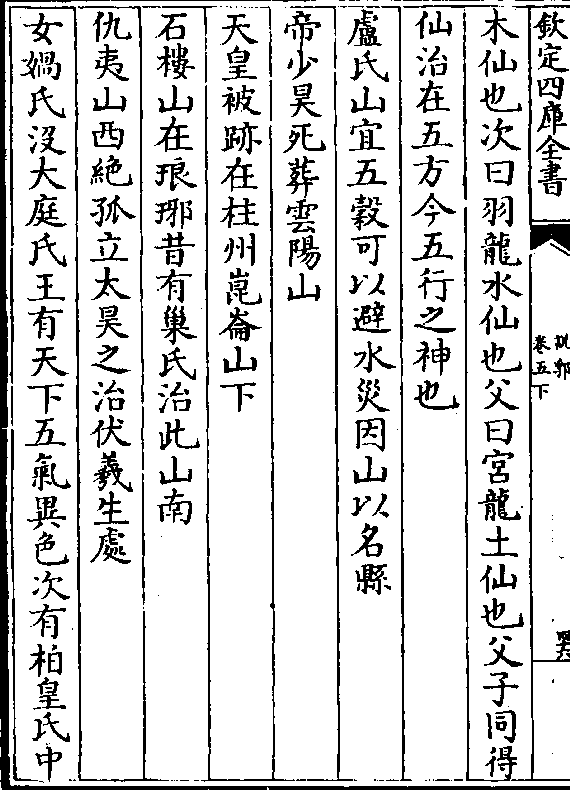 欽定四庫全書
說郛
卷五下
木仙也次曰羽龍水仙也父曰宮龍土仙也父子同得
仙治在五方今五行之神也
盧氏山宜五穀可以避水災因山以名縣
帝少昊死葬雲陽山
天皇被跡在柱州崑崙山下
石樓山在琅琊昔有巢氏治此山南
仇夷山西絶孤立太昊之治伏羲生處
女媧氏沒大庭氏王有天下五氣異色次有柏皇氏中